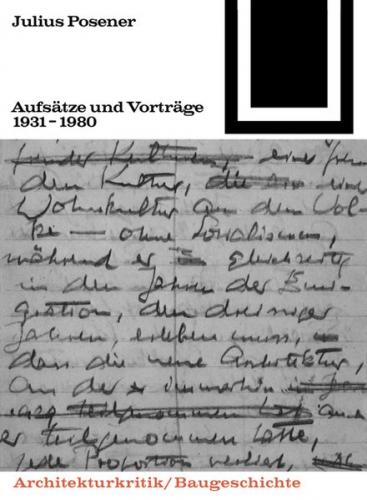 Julius Posener
Aufsätze und Vorträge
1931–1980
einer frem
den Kultur, die einer
Wohnkultur an dem Vol-
ke — ohne Sozialismus,
während er gleichzeitig
in den Jahren der Emi-
gration, den dreissiger
Jahren, erleben muss,
dass die neue Architektur,
an der er immerhin
teilgenommen hat auch
er teilgenommen hatte,
jede Proportion verliert,
Architekturkritik/Baugeschichte